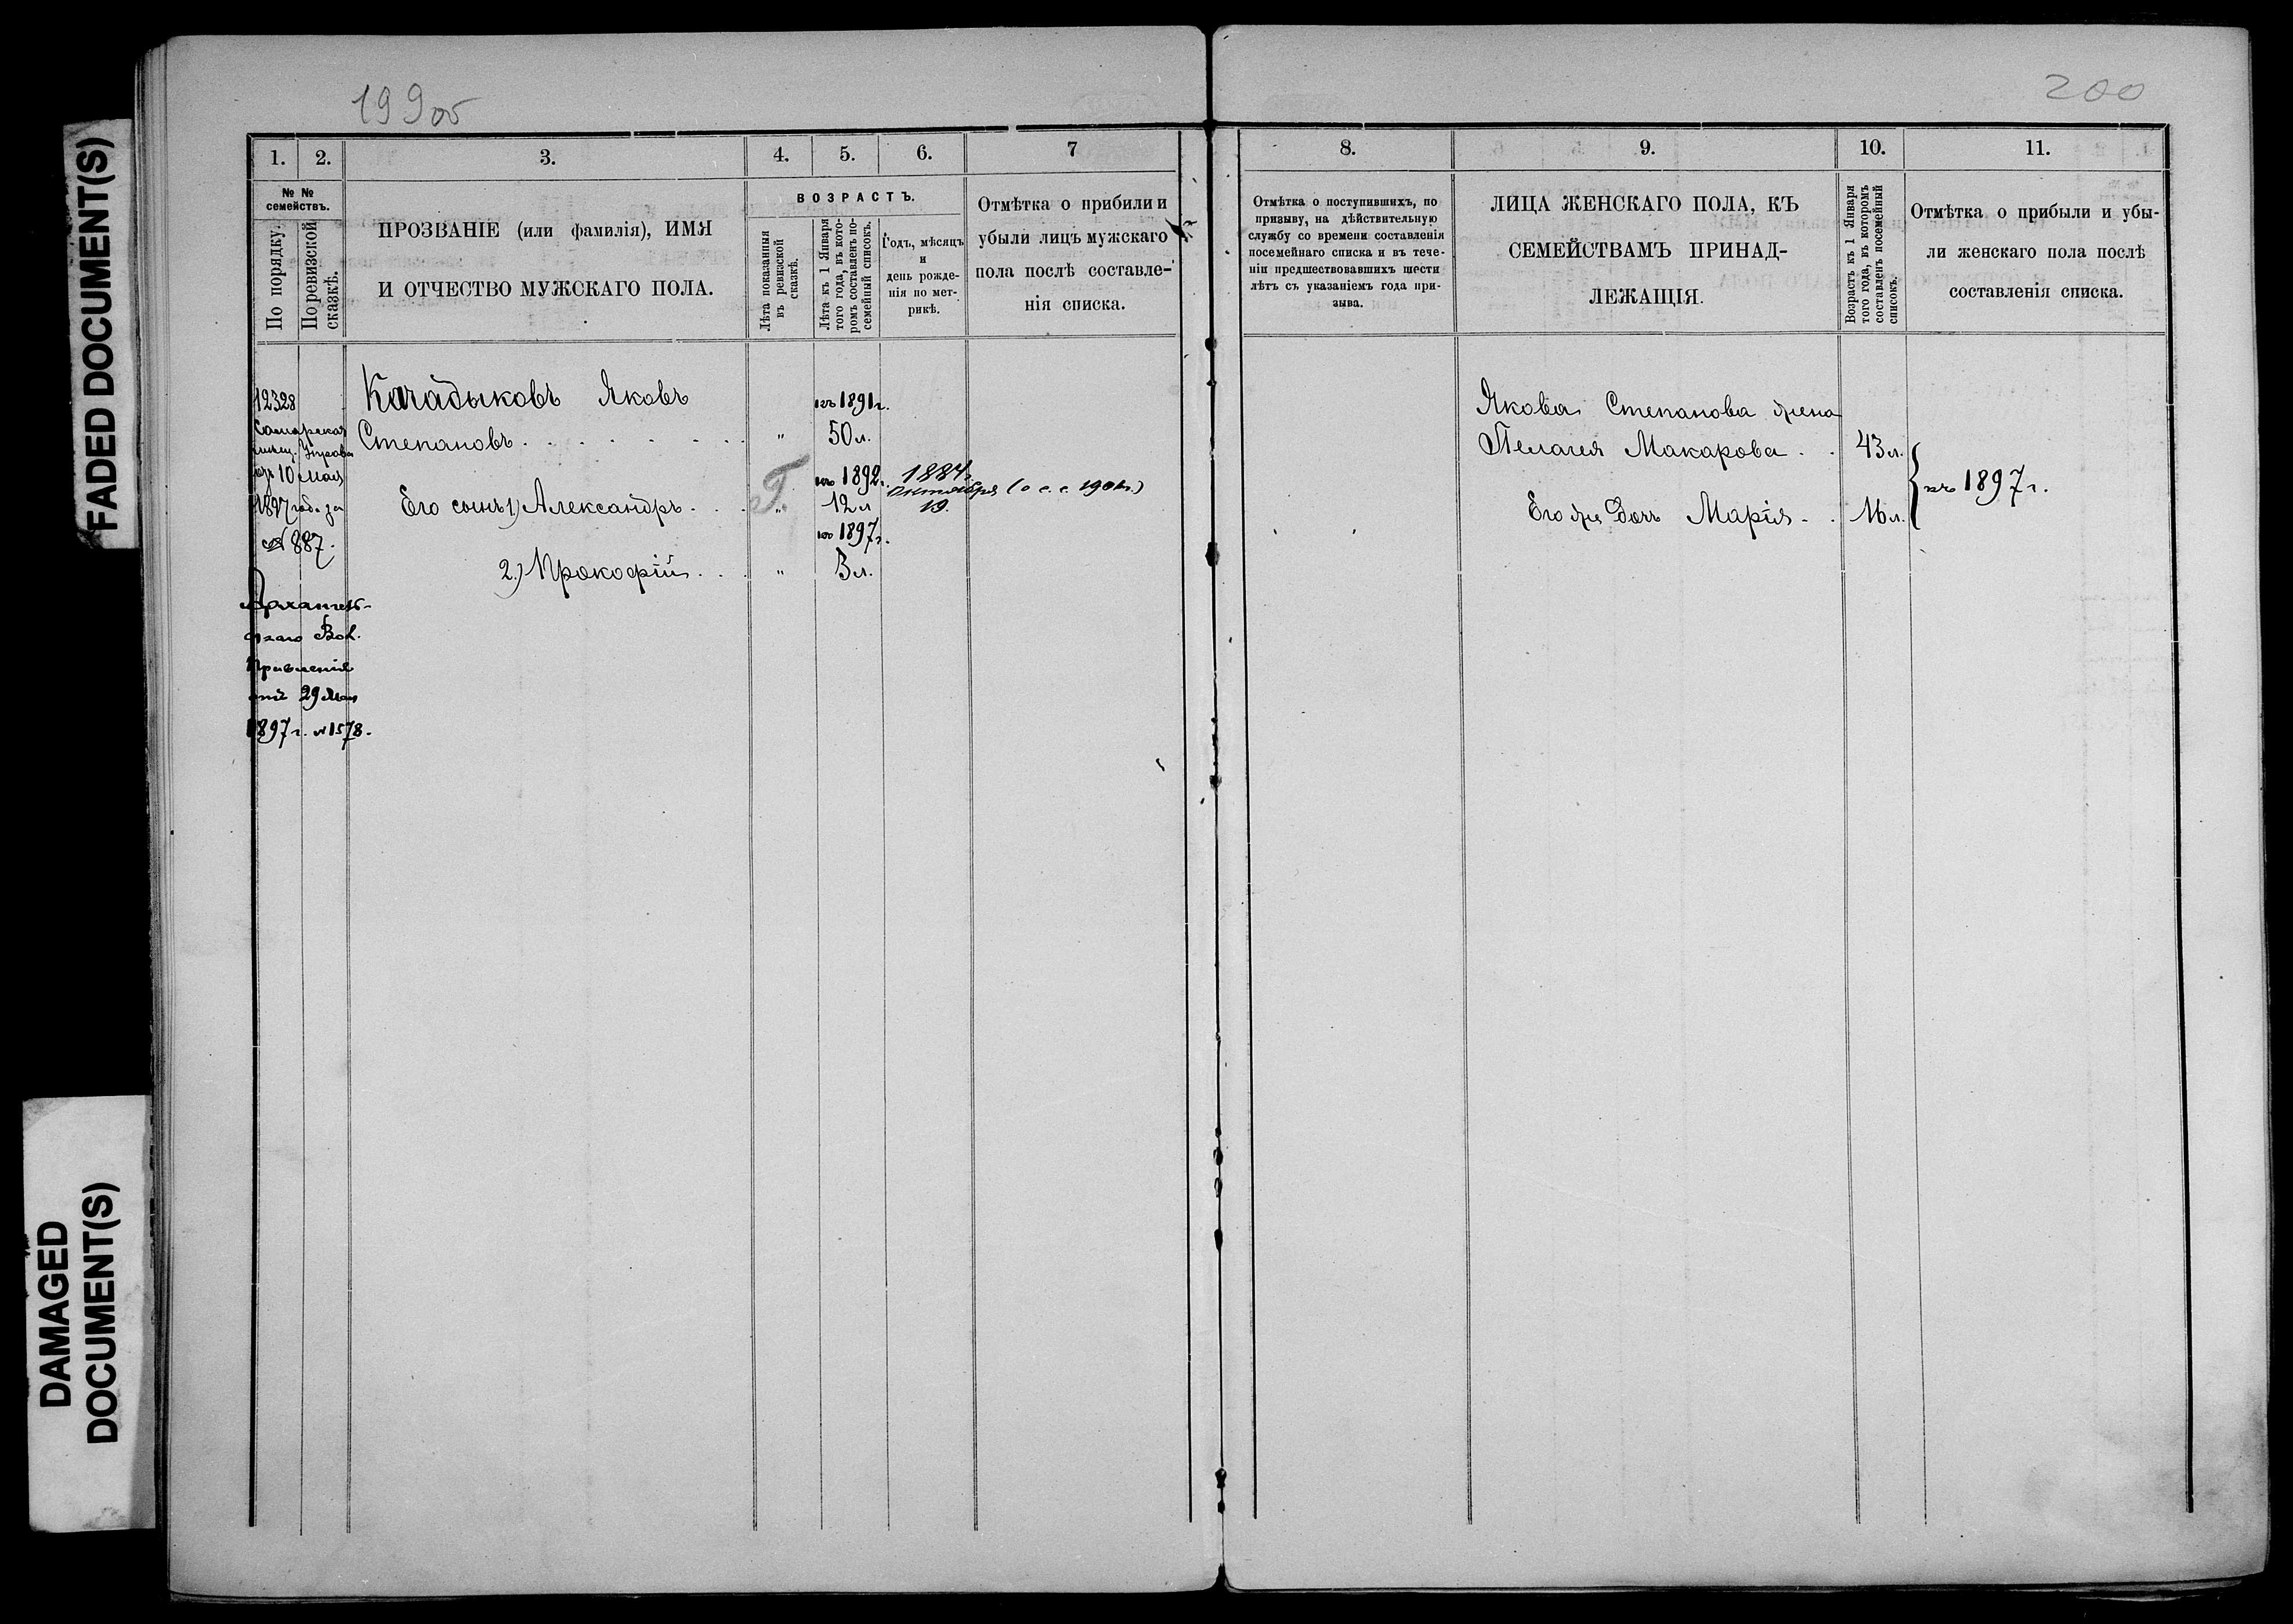 FADED DOCUMENT(S)
DAMAGED
DOCUMENT(S)
199об
1. 2. 3. 4. 5. 6. 7
№ №
семействъ.
По порядку.
По ревизской
сказкѣ.
ПРОЗВАНІЕ (или фамилія), ИМЯ
И ОТЧЕСТВО МУЖСКАГО ПОЛА.
ВОЗРАСТЪ.
Лѣта показанныя
въ ревизской
сказкѣ.
Лѣта къ 1 Января
того года, въ кото-
ромъ составленъ по-
семейный списокъ.
Годъ, мѣсяцъ
и
день рожде-
нія по мет-
рикѣ.
Отмѣтка о прибыли и
убыли лицъ мужскаго
пола послѣ составле-
нія списка.
12328
Самарская
Управа
10 Мая
1897 года за
№ 887.
Вол.
Правленія
отъ 29 Мая
1897 г. № 1578.
Качадыковъ Яковъ
къ 1891 г.
Степановъ " 50 л.
къ 1892 г. 1884 г.
Его сынъ 1) Александръ " 12 л Октября 19. (о с. с. 1901 г.)
къ 1897 г.
2) Прокофій " 3 л.
200
8. 9. 10. 11.
Отмѣтка о поступившихъ, по
призыву, на дѣйствительную
службу со времени составленія
посемейнаго списка и въ тече-
ніи предшествовавшихъ шести
лѣтъ съ указаніемъ года при-
зыва.
ЛИЦА ЖЕНСКАГО ПОЛА, КЪ
СЕМЕЙСТВАМЪ ПРИНАД-
ЛЕЖАЩІЯ.
Возрастъ къ 1 Января
того года, въ которомъ
составленъ посемейный
списокъ.
Отмѣтка о прибыли и убы-
ли женскаго пола послѣ
составленія списка.
Якова Степанова жена
Пелагея Макарова 43 л.
къ 1897 г.
Его же дочь Марія 16 л.